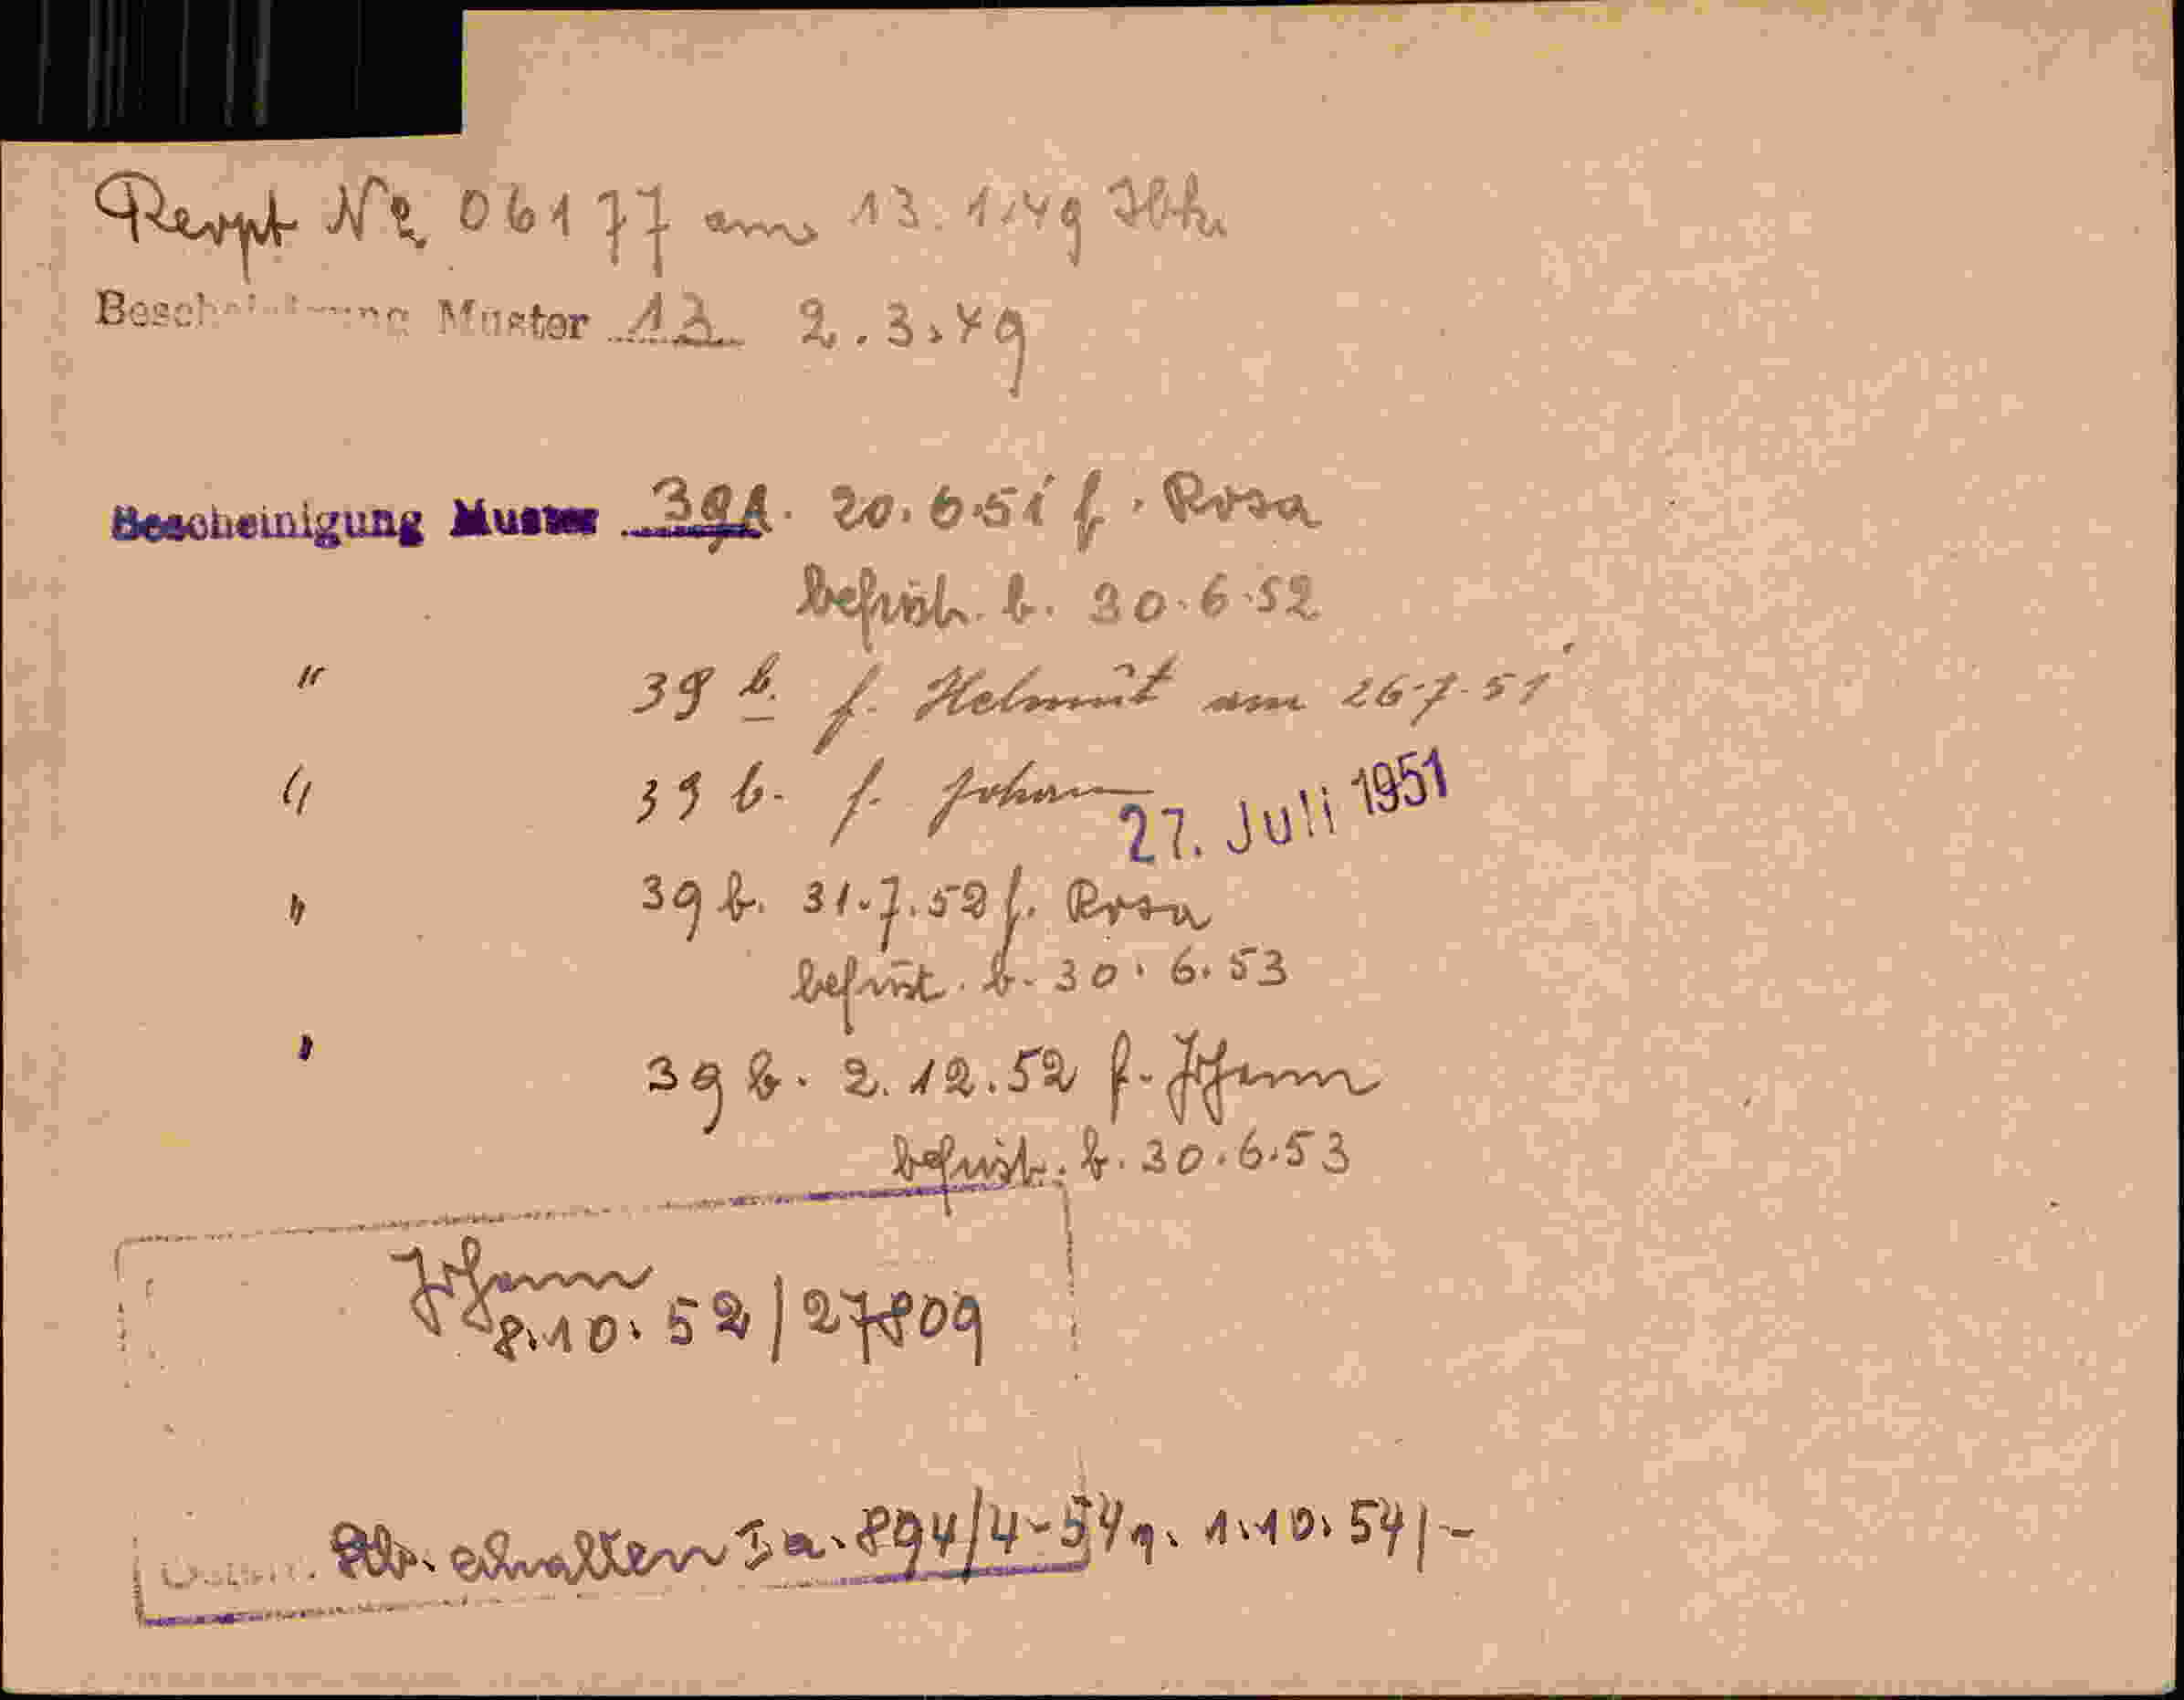 Revpt № 06177 am 13.1.49
Bescheinigung Muster 13 2.3.49
Bescheinigung Muster 39A. 20.6.51 f. Rosa
befrist. b. 30.6.52
" 39 b. f. Helmut am 26.7.51
" 39 b. f. Johann 27. Juli 1951
" 39 b. 31.7.52 f. Rosa
befrist. b. 30.6.53
" 39 b. 2.12.52 f. Johann
befrist. b. 30.6.53
Johann
8.10.52/27809
erhalten 894/4-54 1.10.54/-